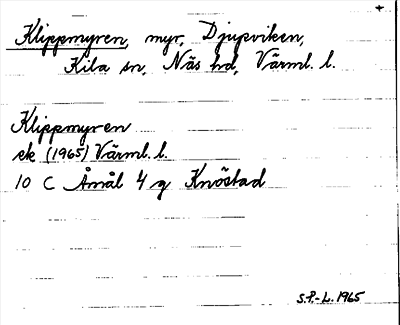 +
Klippmyren, myr, Djupviken,
Kila sn, Näs hd, Värml. l.
Klippmyren
ek (1965) Värml. l.
10 C Åmål 4 g Knöstad
S.P.-L. 1965